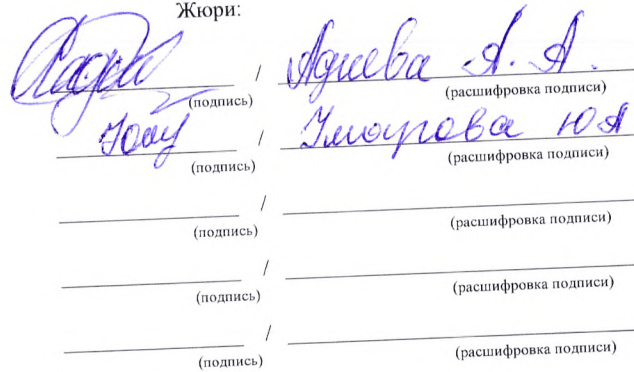 Жюри:
/ Адиева А. А.
(подпись) (расшифровка подписи)
/ Умарова ЮА
(подпись) (расшифровка подписи)
/
(подпись) (расшифровка подписи)
/
(подпись) (расшифровка подписи)
/
(подпись) (расшифровка подписи)